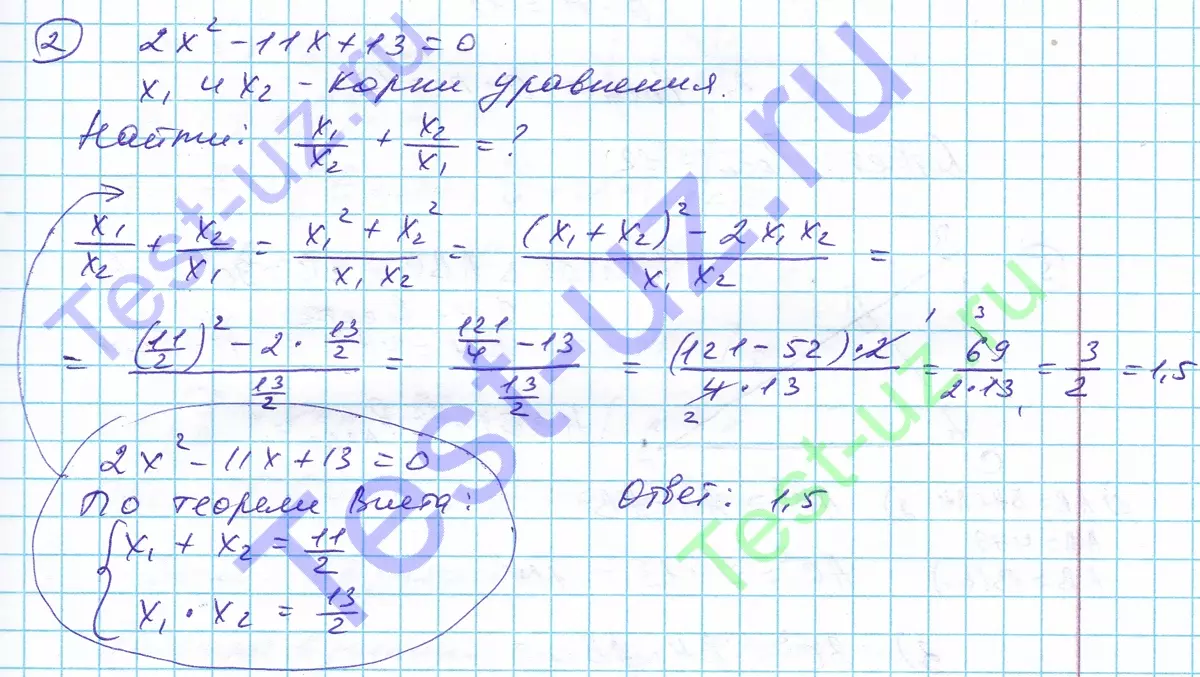 2 2x² - 11x + 13 = 0
x₁ и x₂ - корни уравнения.
Найти: x₁/x₂ + x₂/x₁ = ?
x₁/x₂ + x₂/x₁ = (x₁² + x₂²)/(x₁ x₂) = ((x₁ + x₂)² - 2x₁x₂)/(x₁ x₂) =
= ((11/2)² - 2 · 13/2)/(13/2) = (121/4 - 13)/(13/2) = ((121 - 52) · 2)/(4 · 13) = 69/(2 · 13) = 3/2 = 1,5
2x² - 11x + 13 = 0
По теореми Виета:
x₁ + x₂ = 11/2
x₁ · x₂ = 13/2
Ответ: 1,5
Test-uz.ru
Test-uz.ru
Test-uz.ru